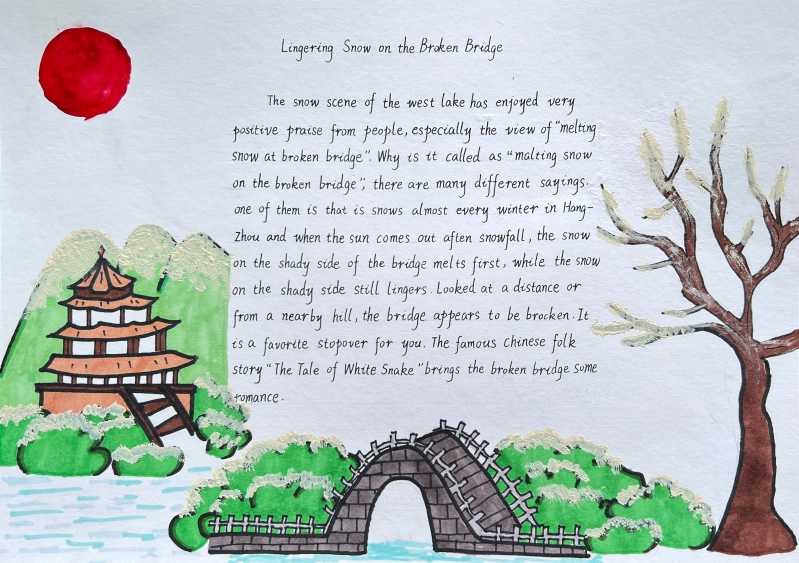 Lingering Snow on the Broken Bridge
The snow scene of the west lake has enjoyed very
positive praise from people, especially the view of "melting
snow at broken bridge". Why is it called as "malting snow
on the broken bridge", there are many different sayings.
one of them is that is snows almost every winter in Hang-
Zhou and when the sun comes out aften snowfall, the snow
on the shady side of the bridge melts first, while the snow
on the shady side still lingers. Looked at a distance or
from a nearby hill, the bridge appears to be brocken. It
is a favorite stopover for you. The famous chinese folk
story "The Tale of White Snake" brings the broken bridge some
romance.